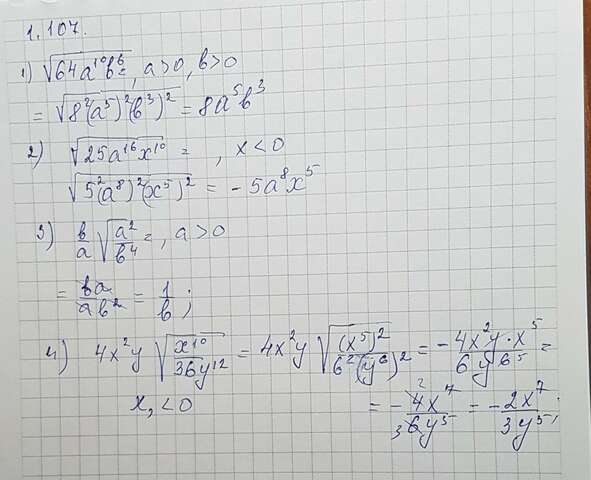 1.107.
1) √(64a¹⁰b⁶) =, a>0, b>0
= √(8²(a⁵)²(b³)²) = 8a⁵b³
2) √(25a¹⁶x¹⁰) = , x<0
√(5²(a⁸)²(x⁵)²) = -5a⁸x⁵
3) b/a √(a²/b⁴) =, a>0
= ba/ab² = 1/b;
4) 4x²y √(x¹⁰/36y¹²) = 4x²y √((x⁵)²/6²(y⁶)²) = - 4x²y·x⁵/6y⁶ ⁵ =
x,<0 = - 4 ² x⁷/3 6y⁵ = - 2x⁷/3y⁵;